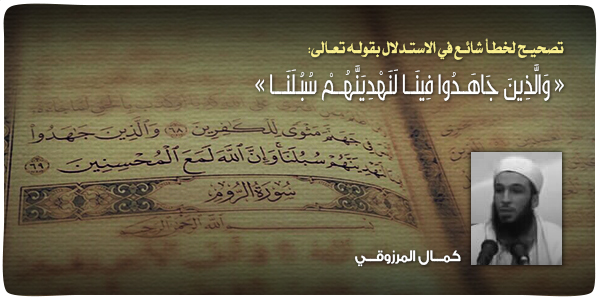 تصحيح لخطأ شائع في الاستدلال بقوله تعالى:
« وَالَّذِينَ جَاهَدُوا فِينَا لَنَهْدِيَنَّهُمْ سُبُلَنَا »
فى جهنم مثوى للكفرين ٦٨ والذين جهدوا
لنهدينهم سبلنا وإن الله لمع المحسنين ٦٩
سورة الروم
بسم الله الرحمن الرحيم
كمال المرزوقي